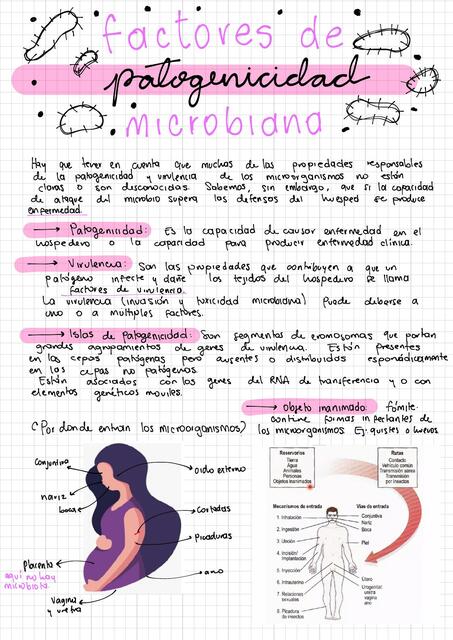 factores de
patogenicidad
microbiana
Hay que tener en cuenta que muchas de las propiedades responsables
de la patogenicidad y virulencia de los microorganismos no están
claras o son desconocidas. Sabemos, sin embargo, que si la capacidad
de ataque del microbio supera las defensas del huesped se produce
enfermedad.
→ Patogenicidad: Es la capacidad de causar enfermedad en el
hospedero o la capacidad para producir enfermedad clínica.
→ Virulencia: Son las propiedades que contribuyen a que un
patógeno infecte y dañe los tejidos del hospedero se llama
factores de virulencia.
La virulencia (invasión y toxicidad microbiana) puede deberse a
uno o a multiples factores.
→ Islas de Patogenicidad: Son segmentos de cromosomas que portan
grandes agrupamientos de genes de virulencia. Están presentes
en las cepas patógenas pero ausentes o distribuidos esporádicamente
en las cepas no patógenas.
Están asociados con los genes del RNA de transferencia y o con
elementos genéticos moviles.
→ Objeto inanimado: fómite.
contiene formas infectantes de
los microorganismos. Ej: quistes o huevos
¿Por donde entran los microorganismos?
conjuntiva
oido externo
nariz
boca
Cortadas
Picaduras
Placenta
aquí no hay
microbiota
ano
Vagina
y uretra
Reservorios
Tierra
Agua
Animales
Personas
Objetos inanimados
Rutas
Contacto
Vehículo común
Transmisión aérea
Transmisión
por insectos
Mecanismos de entrada
Vías de entrada
1. Inhalación
2. Ingestión
3. Unción
4. Incisión/
Implantación
5. Inyección
6. Intrauterino
7. Relaciones
sexuales
8. Picadura de
insectos
Conjuntiva
Nariz
Boca
Piel
Útero
Urogenital:
uretra
vagina
ano